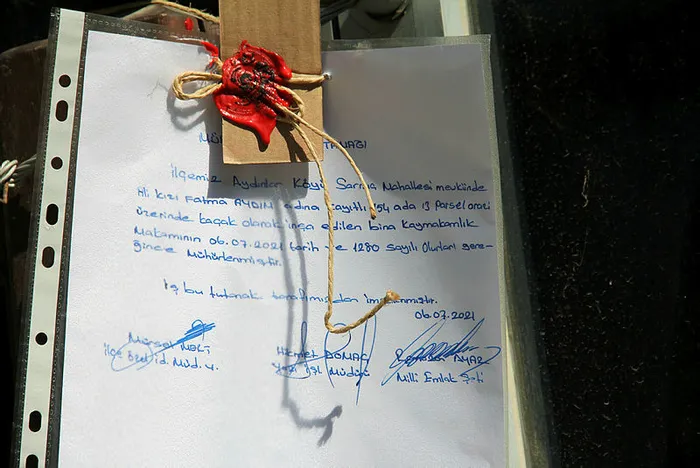 TUTANAĞI
İlçemiz Aydınlar Köyü Sarma Mahallesi mevkiinde
Ali kızı Fatma AYDIN adına kayıtlı 154 ada 13 Parsel arazi
üzerinde kaçak olarak inşa edilen bina Kaymakamlık
Makamının 06.07.2021 tarih ve 1280 sayılı Olurları gere-
ğince Mühürlenmiştir.
İş bu tutanak tarafımızdan imzalanmıştır.
06.07.2021
Mürsel Hikmet DOMAÇ AYAZ
İlçe Özel id. Müd. V. Yazı İşl. Müdürü Milli Emlak Şefi